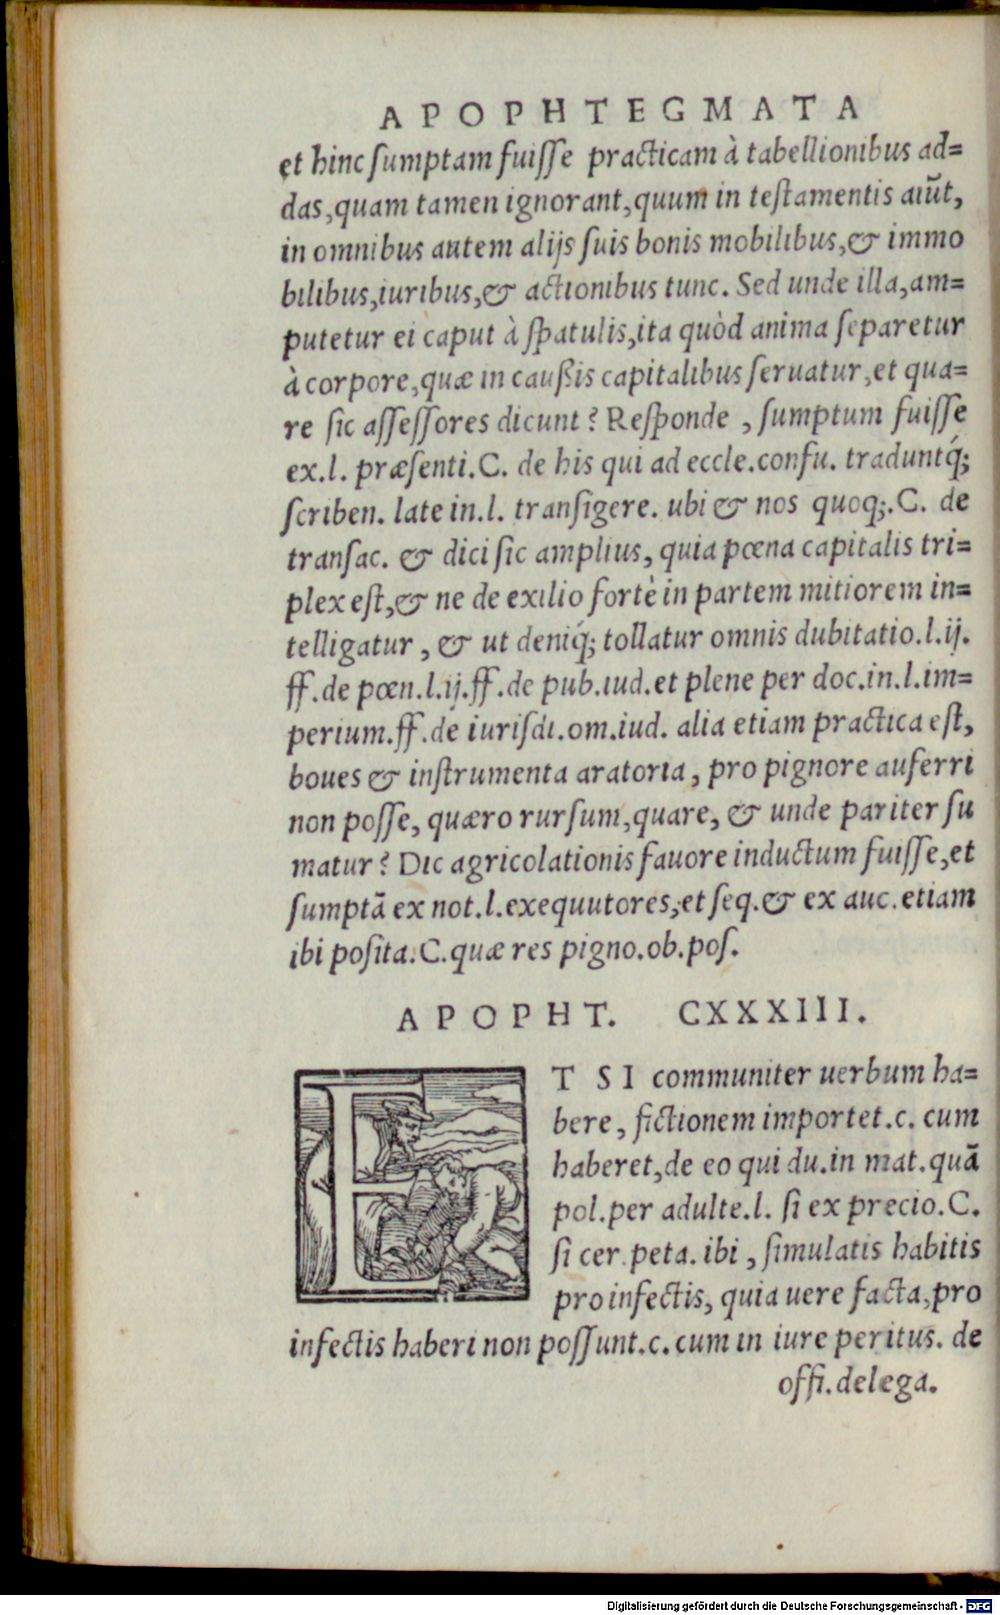 APOPHTEGMATA
et hinc ſumptam fuiſſe practicam à tabellionibus ad=
das, quam tamen ignorant, quum in teſtamentis aiūt,
in omnibus autem alijs ſuis bonis mobilibus, & immo
bilibus, iuribus, & actionibus tunc. Sed unde illa, am=
putetur ei caput à ſpatulis, ita quòd anima ſeparetur
à corpore, quæ in cauſsis capitalibus ſeruatur, et qua=
re ſic aſſeſſores dicunt? Reſponde, ſumptum fuiſſe
ex.l. præſenti. C. de his qui ad eccle.confu. traduntq́;
ſcriben. late in.l. tranſigere. ubi & nos quoq;. C. de
tranſac. & dici ſic amplius, quia pœna capitalis tri=
plex eſt, & ne de exilio fortè in partem mitiorem in=
telligatur, & ut deniq́; tollatur omnis dubitatio.l.ij.
ff.de pœn.l.ij.ff.de pub.iud.et plene per doc.in.l.im=
perium.ff.de iuriſdi.om.iud. alia etiam practica eſt,
boues & inſtrumenta aratoria, pro pignore auferri
non poſſe, quæro rurſum, quare, & unde pariter ſu
matur? Dic agricolationis fauore inductum fuiſſe, et
ſumptā ex not.l.exequutores, et ſeq. & ex auc.etiam
ibi poſita. C. quæ res pigno.ob.poſ.
APOPHT. CXXXIII.
ET SI communiter uerbum ha=
bere, fictionem importet.c. cum
haberet, de eo qui du.in mat.quā
pol.per adulte.l. ſi ex precio. C.
ſi cer.peta. ibi, ſimulatis habitis
pro infectis, quia uere facta, pro
infectis haberi non poſſunt.c. cum in iure peritus. de
offi.delega.
Digitalisierung gefördert durch die Deutsche Forschungsgemeinschaft - DFG